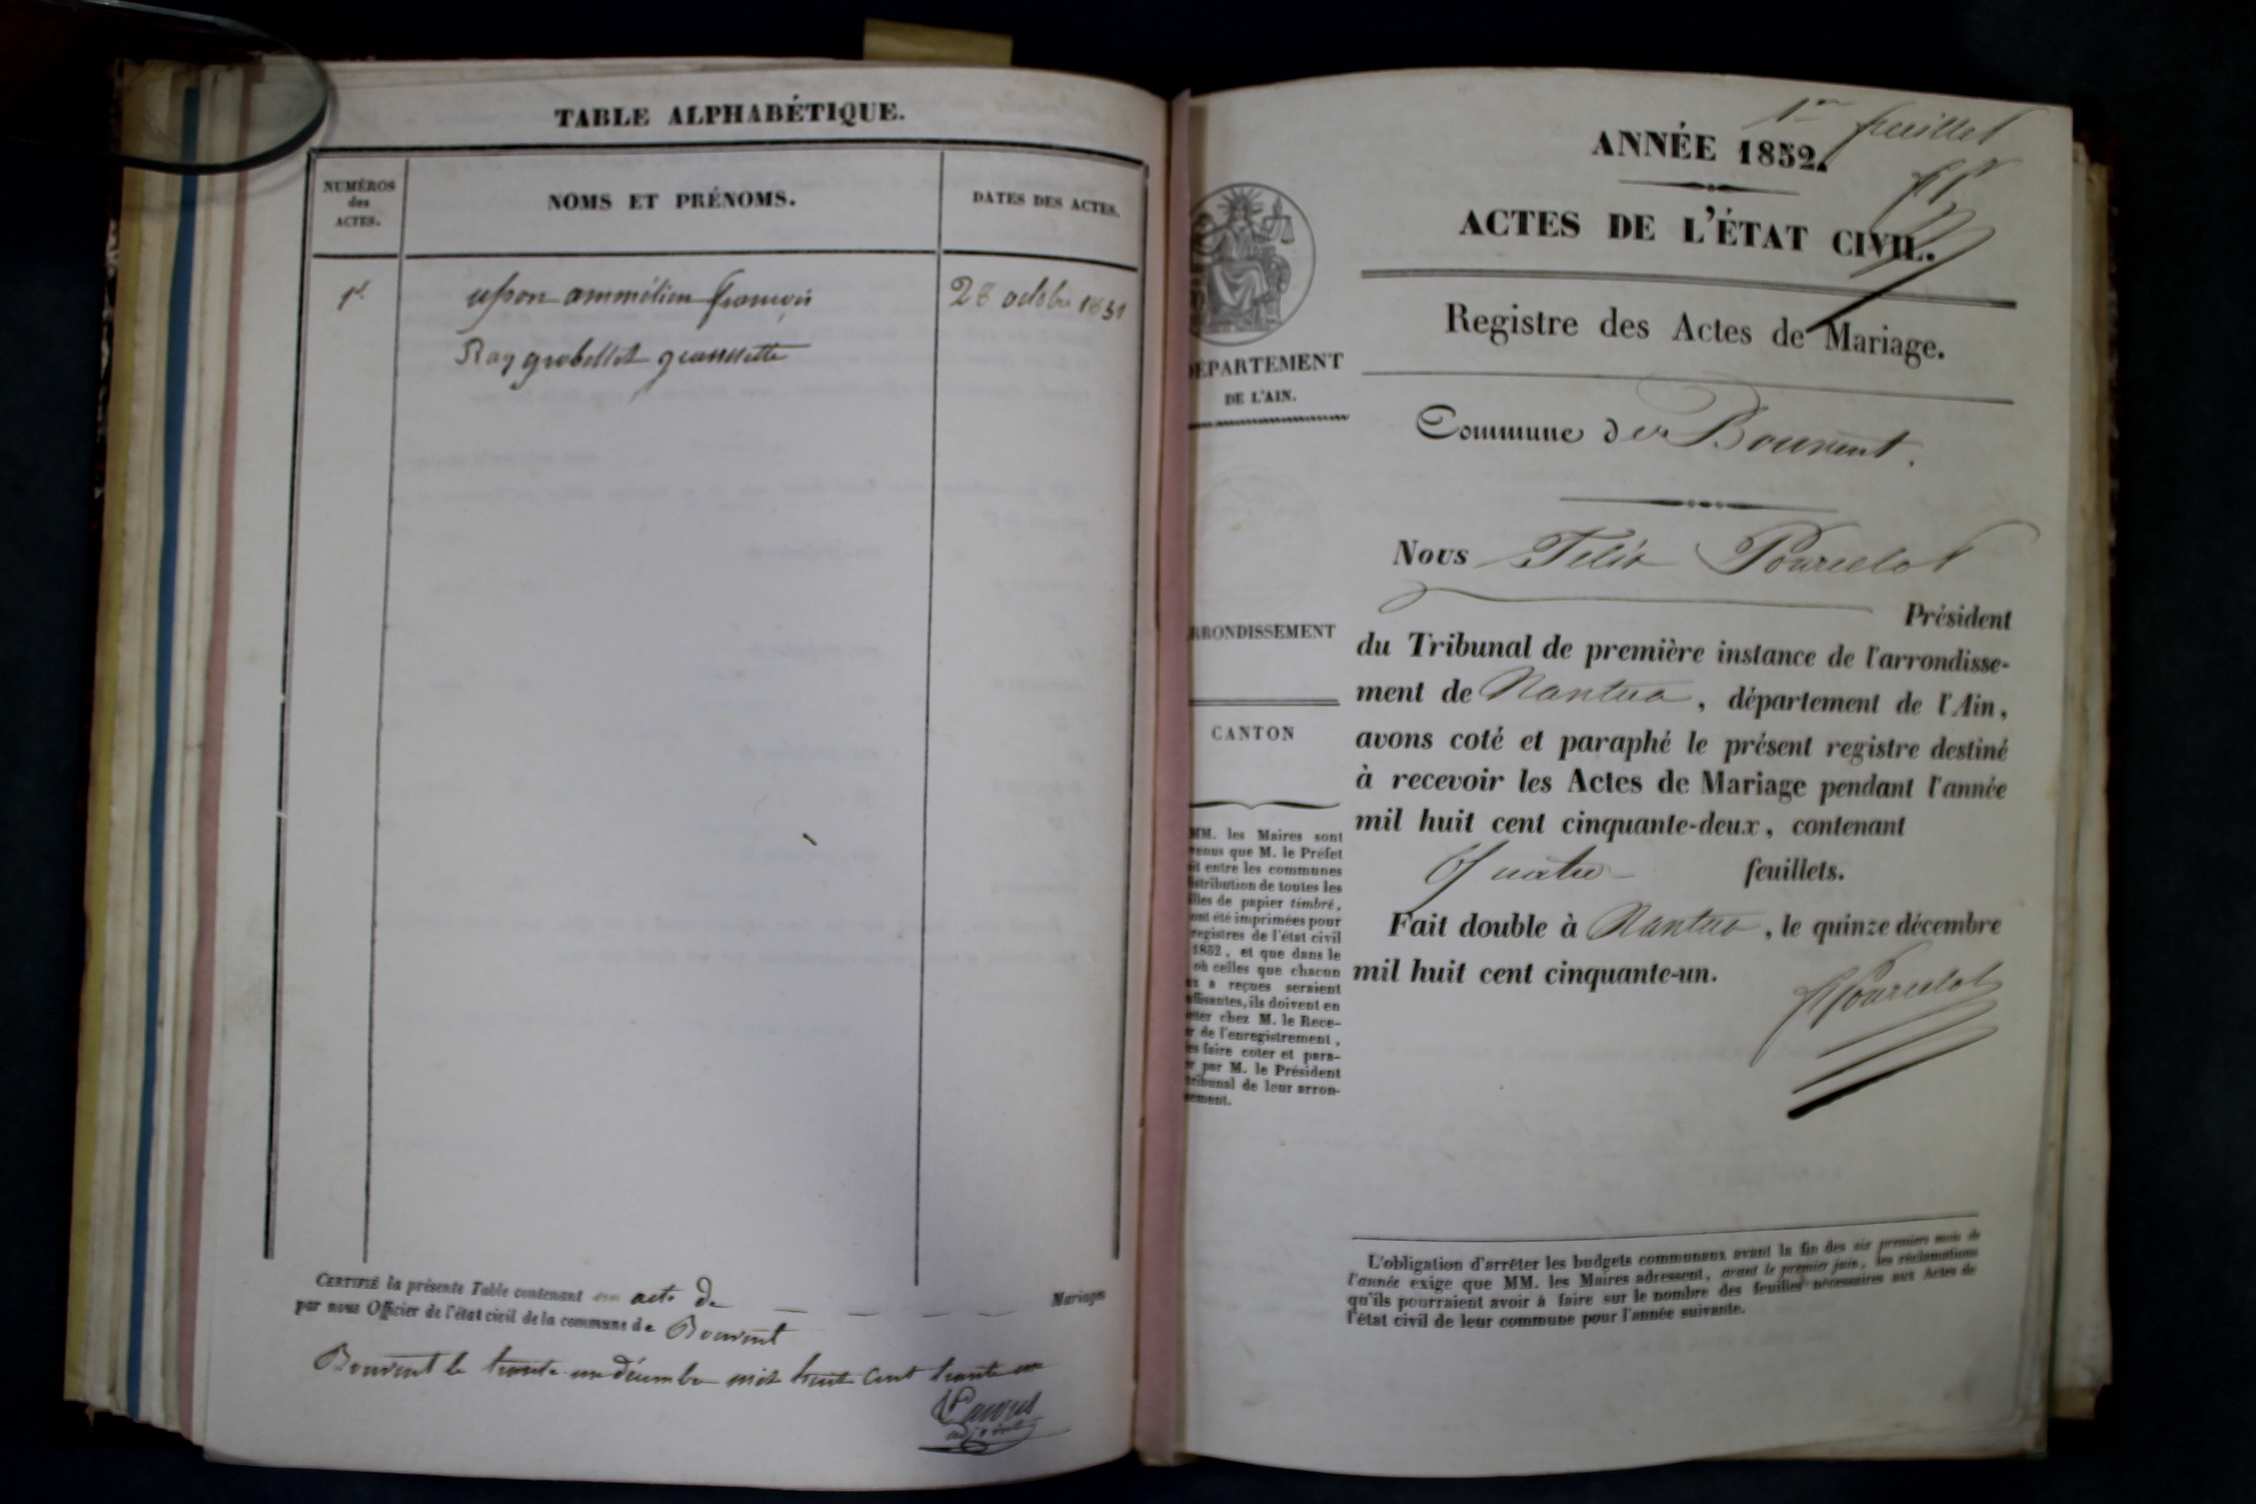 TABLE ALPHABÉTIQUE.
NUMÉROS
des
ACTES.
NOMS ET PRÉNOMS.
DATES DES ACTES.
françois
28 octobre 1851
Ray grobellet
CERTIFIÉ la présente Table contenant un acte de Mariages
par nous Officier de l'état civil de la commune de Bouvent
Bouvent le trente un décembre mil huit cent trente un
adjoint
1er feuillet
ANNÉE 1852.
ACTES DE L'ÉTAT CIVIL.
Registre des Actes de Mariage.
DÉPARTEMENT
DE L'AIN.
Commune de Bouvent.
Nous Félix Pourcelot
Président
ARRONDISSEMENT
du Tribunal de première instance de l'arrondisse-
ment de Nantua, département de l'Ain,
CANTON
avons coté et paraphé le présent registre destiné
à recevoir les Actes de Mariage pendant l'année
mil huit cent cinquante-deux, contenant
Quatre feuillets.
Fait double à Nantua, le quinze décembre
mil huit cent cinquante-un.
Pourcelot
MM. les Maires sont
venus que M. le Préfet
it entre les communes
istribution de toutes les
illes de papier timbré,
ont été imprimées pour
registres de l'état civil
1852, et que dans le
où celles que chacun
x a reçues seraient
ffisantes, ils doivent en
eter chez M. le Rece-
r de l'enregistrement,
es faire coter et para-
r par M. le Président
tribunal de leur arron-
sement.
L'obligation d'arrêter les budgets communaux avant la fin des six premiers mois de
l'année exige que MM. les Maires adressent, avant le premier juin, les réclamations
qu'ils pourraient avoir à faire sur le nombre des feuilles nécessaires aux Actes de
l'état civil de leur commune pour l'année suivante.